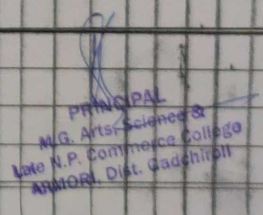 PRINCIPAL
M.G. Arts, Science &
Late N.P. Commerce College
ARMORI, Dist. Gadchiroli